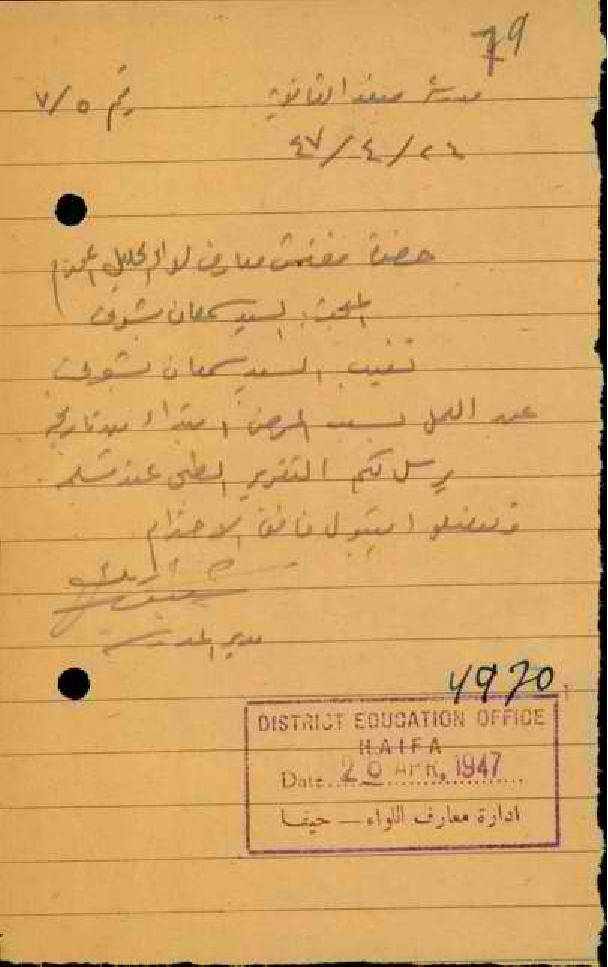 79
مدرسة صفد الثانوية رقم ٧/٥
٤٧/٤/٢٤
حضرة مفتش معارف لواء الجليل المحترم
المبحث: السيد سمعان
تغيب السيد سمعان
عن العمل بسبب المرض ابتداء من تاريخه
نرسل لكم التقرير الطبي عند تسلمه
وتفضلوا بقبول فائق الاحترام
مدير المدرسة
4970
DISTRICT EDUCATION OFFICE
HAIFA
Date APR, 1947
ادارة معارف اللواء — حيفا